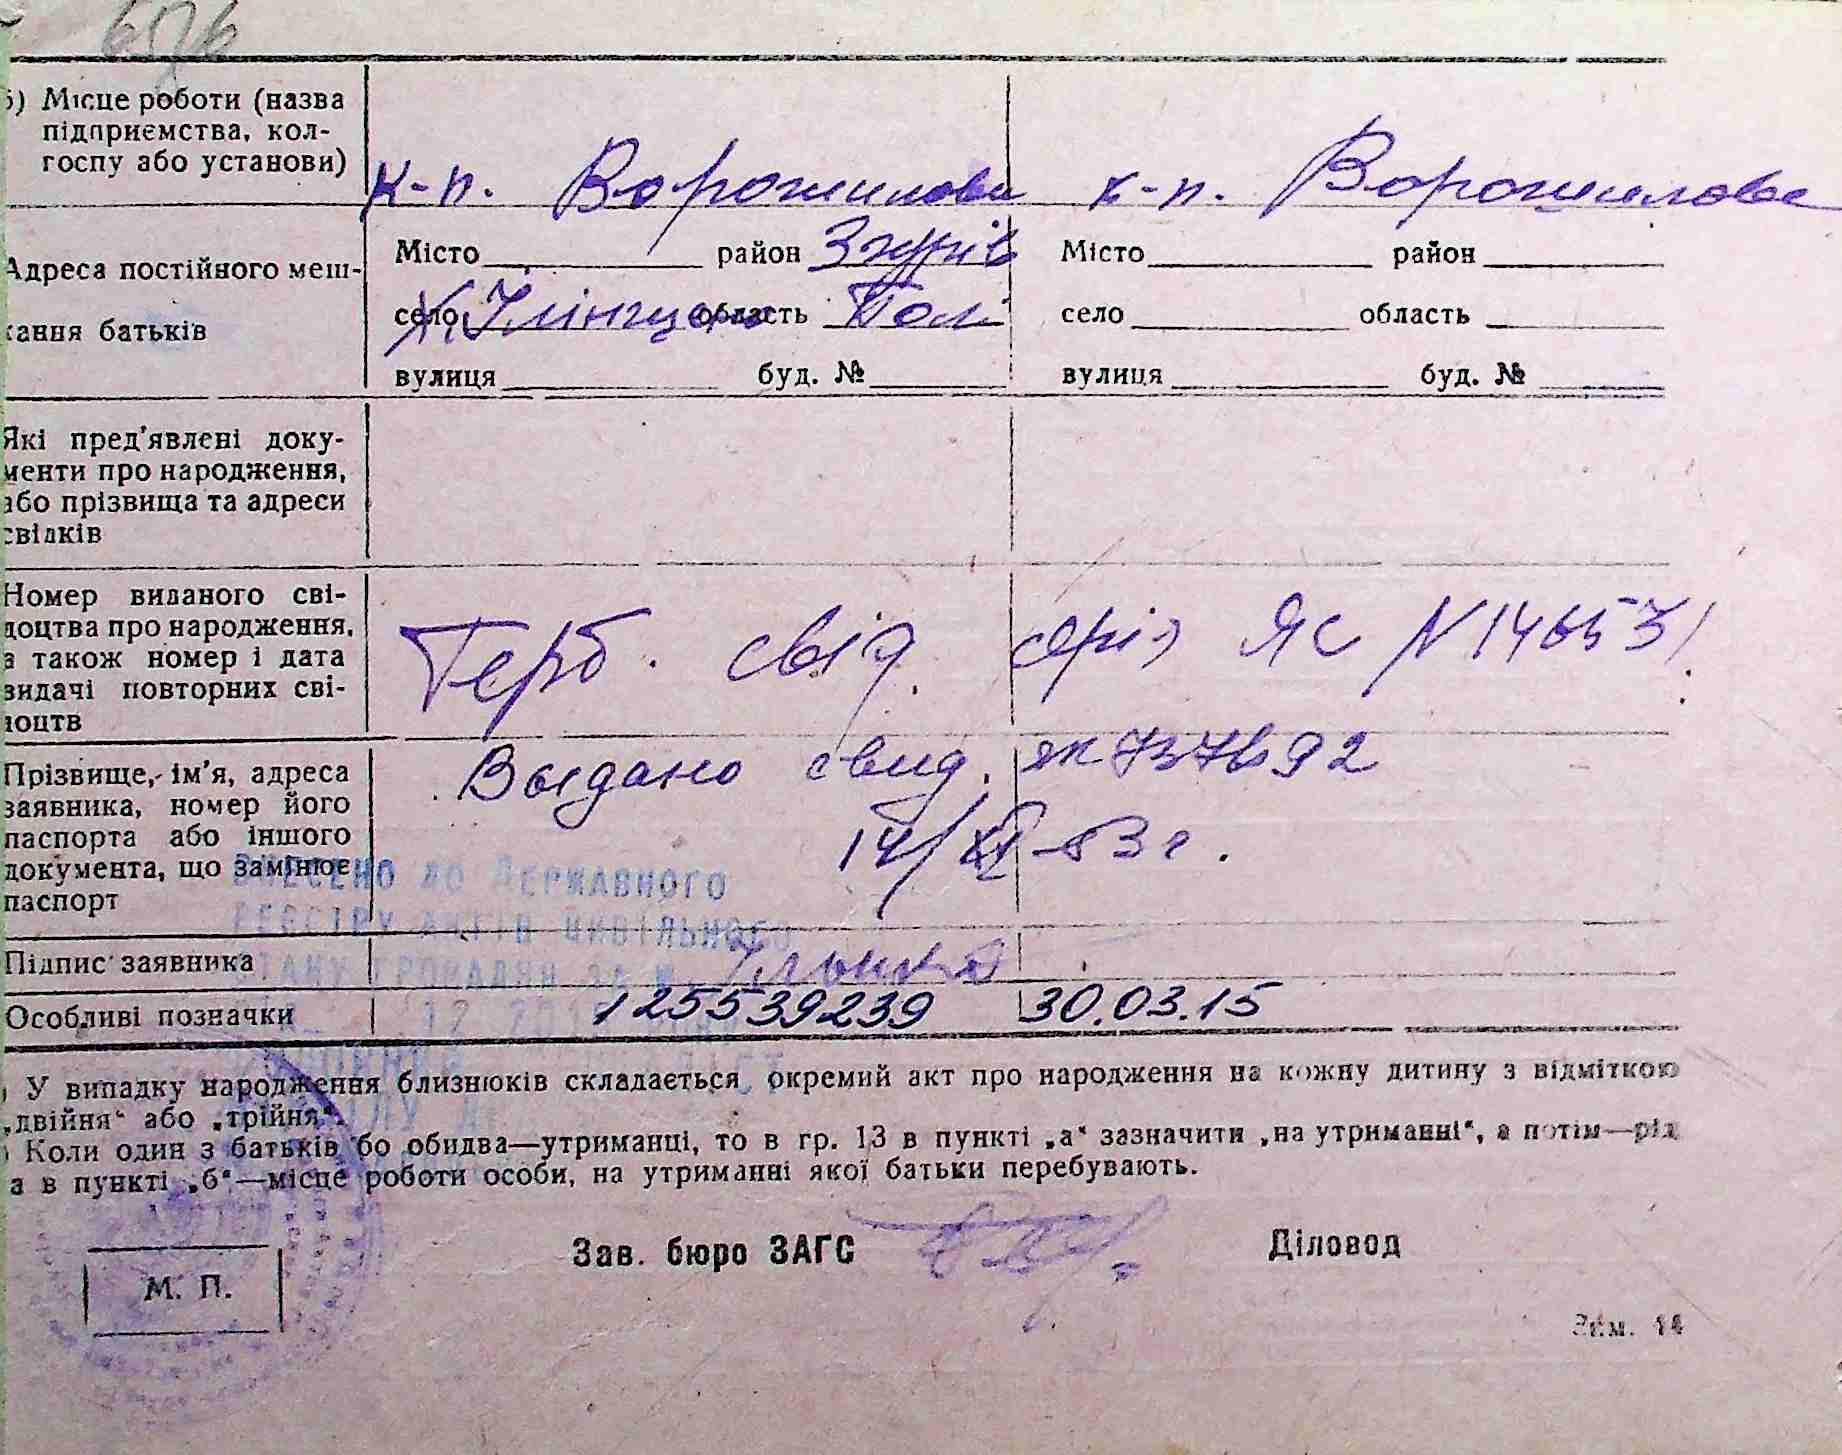 б) Місце роботи (назва
підприємства, кол-
госпу або установи)
к-п. Ворошилова к-п. Ворошилова
Адреса постійного меш-
кання батьків
Місто район Згурів Місто район
село область Пол село область
вулиця буд. № вулиця буд. №
Які пред'явлені доку-
менти про народження,
або прізвища та адреси
свідків
Номер виданого сві-
доцтва про народження,
а також номер і дата
видачі повторних сві-
доцтв
Герб. свід. серія ЯС N 146531
Прізвище, ім'я, адреса
заявника, номер його
паспорта або іншого
документа, що замінює
паспорт
Выдано свид. 737692
14/XII-83 г.
ВНЕСЕНО ДО ДЕРЖАВНОГО
РЕЄСТРУ АКТІВ ЦИВІЛЬНОГО
СТАНУ ГРОМАДЯН ЗА №
Підпис заявника
Особливі позначки 125539239 30.03.15
У випадку народження близнюків складається окремий акт про народження на кожну дитину з відміткою
„двійня“ або „трійня“.
Коли один з батьків або обидва—утриманці, то в гр. 13 в пункті „а“ зазначити „на утриманні“, а потім—рід
а в пункті „б“—місце роботи особи, на утриманні якої батьки перебувають.
Зав. бюро ЗАГС Діловод
М. П.
Зам. 14